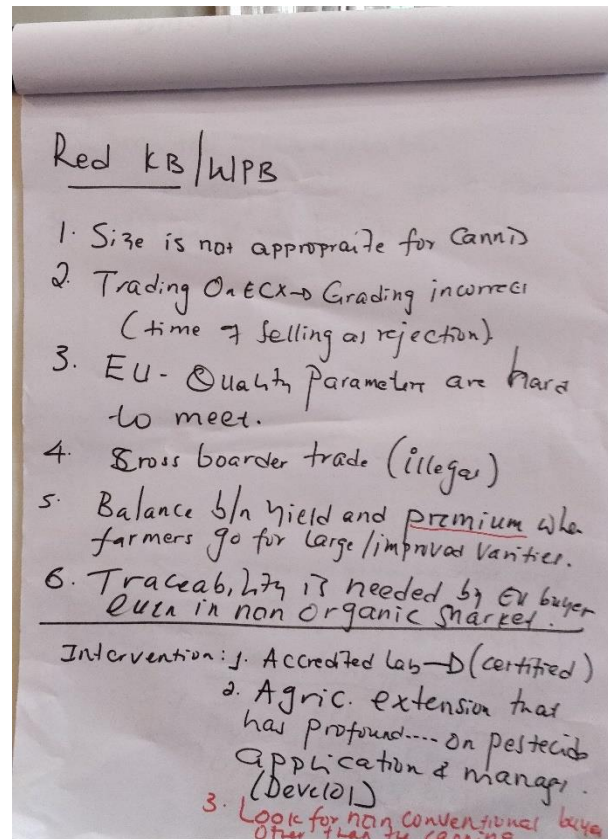 Red KB/WPB
1. Size is not appropraite for Canni
2. Trading On ECX → Grading incorrect
(time of selling as rejection).
3. EU - Quality Parameters are hard
to meet.
4. Cross boarder trade (illegal)
5. Balance b/n Yield and premium when
farmers go for Large/improved Varities.
6. Traceability is needed by EU buyer
even in non organic market.
Intervention: 1. Accredited Lab → (certified)
2. Agric. extension that
has profound.... on pestecide
application & manag.
(Develo
3. Look for non conventional buye
Other than the